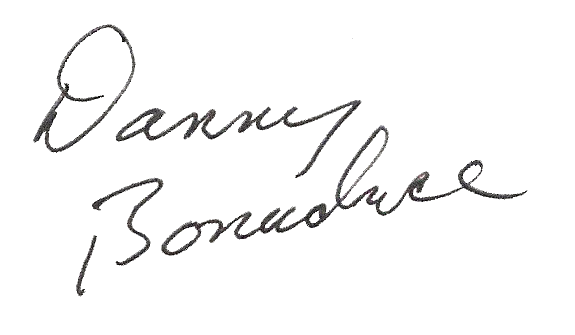 Danny
Bonaduce